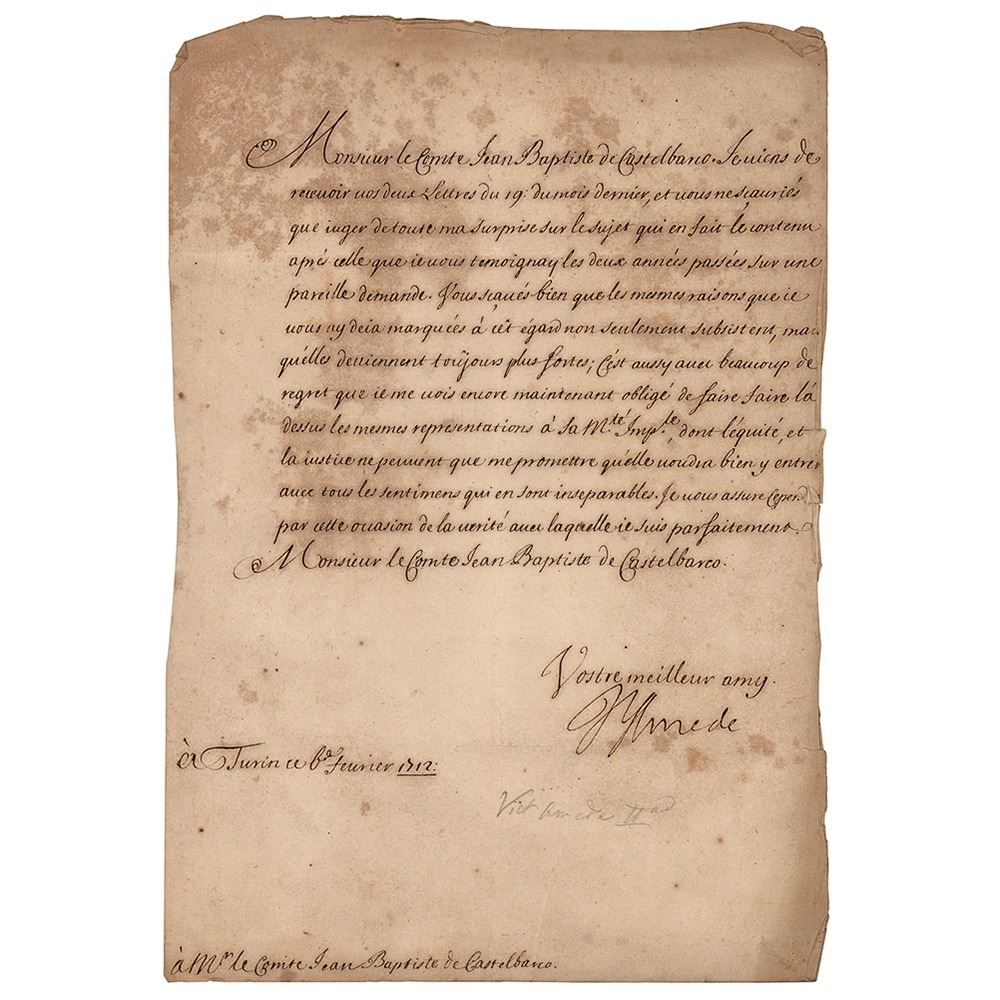 Monsieur le Comte Jean Baptiste de Castelbarco. Je uiens de
receuoir uos deux Lettres du 19: du mois dernier, et uous ne scauriés
que iuger de toute ma surprise sur le sujet qui en fait le contenu
aprés celle que ie uous temoignay les deux années passées sur une
pareille demande. Vous scaués bien que les mesmes raisons que ie
uous ay deia marquées à cét égard non seulement subsistent, mai
qu'elles deuiennent toûjours plus fortes; C'est aussy auec beaucoup de
regret que ie me uois encore maintenant obligé de faire faire là
dessus les mesmes representations à Sa M.té Imp.le, dont l'équité, et
la iustice ne peuuent que me promettre qu'elle uoudra bien y entrer
auec tous les sentimens qui en sont inseparables. Je uous assure Cepend
par cette occasion de la uerité auec laquelle ie suis parfaitement.
Monsieur le Comte Jean Baptiste de Castelbarco.
Vostre meilleur amy.
V Amede
à Turin ce 6.e feurier 1712:
Vict Amede II
à M.r le Comte Jean Baptiste de Castelbarco.